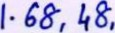 1. 68, 48,